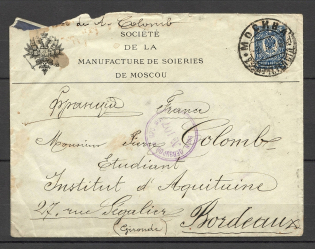 de A. Colomb
SOCIÉTÉ
DE LA
MANUFACTURE DE SOIERIES
DE MOSCOU
МОСКВА
Франція France
Monsieur Pierre Colomb
Etudiant
Institut d'Aquitaine
27, rue Ségalier Bordeaux
(Gironde)